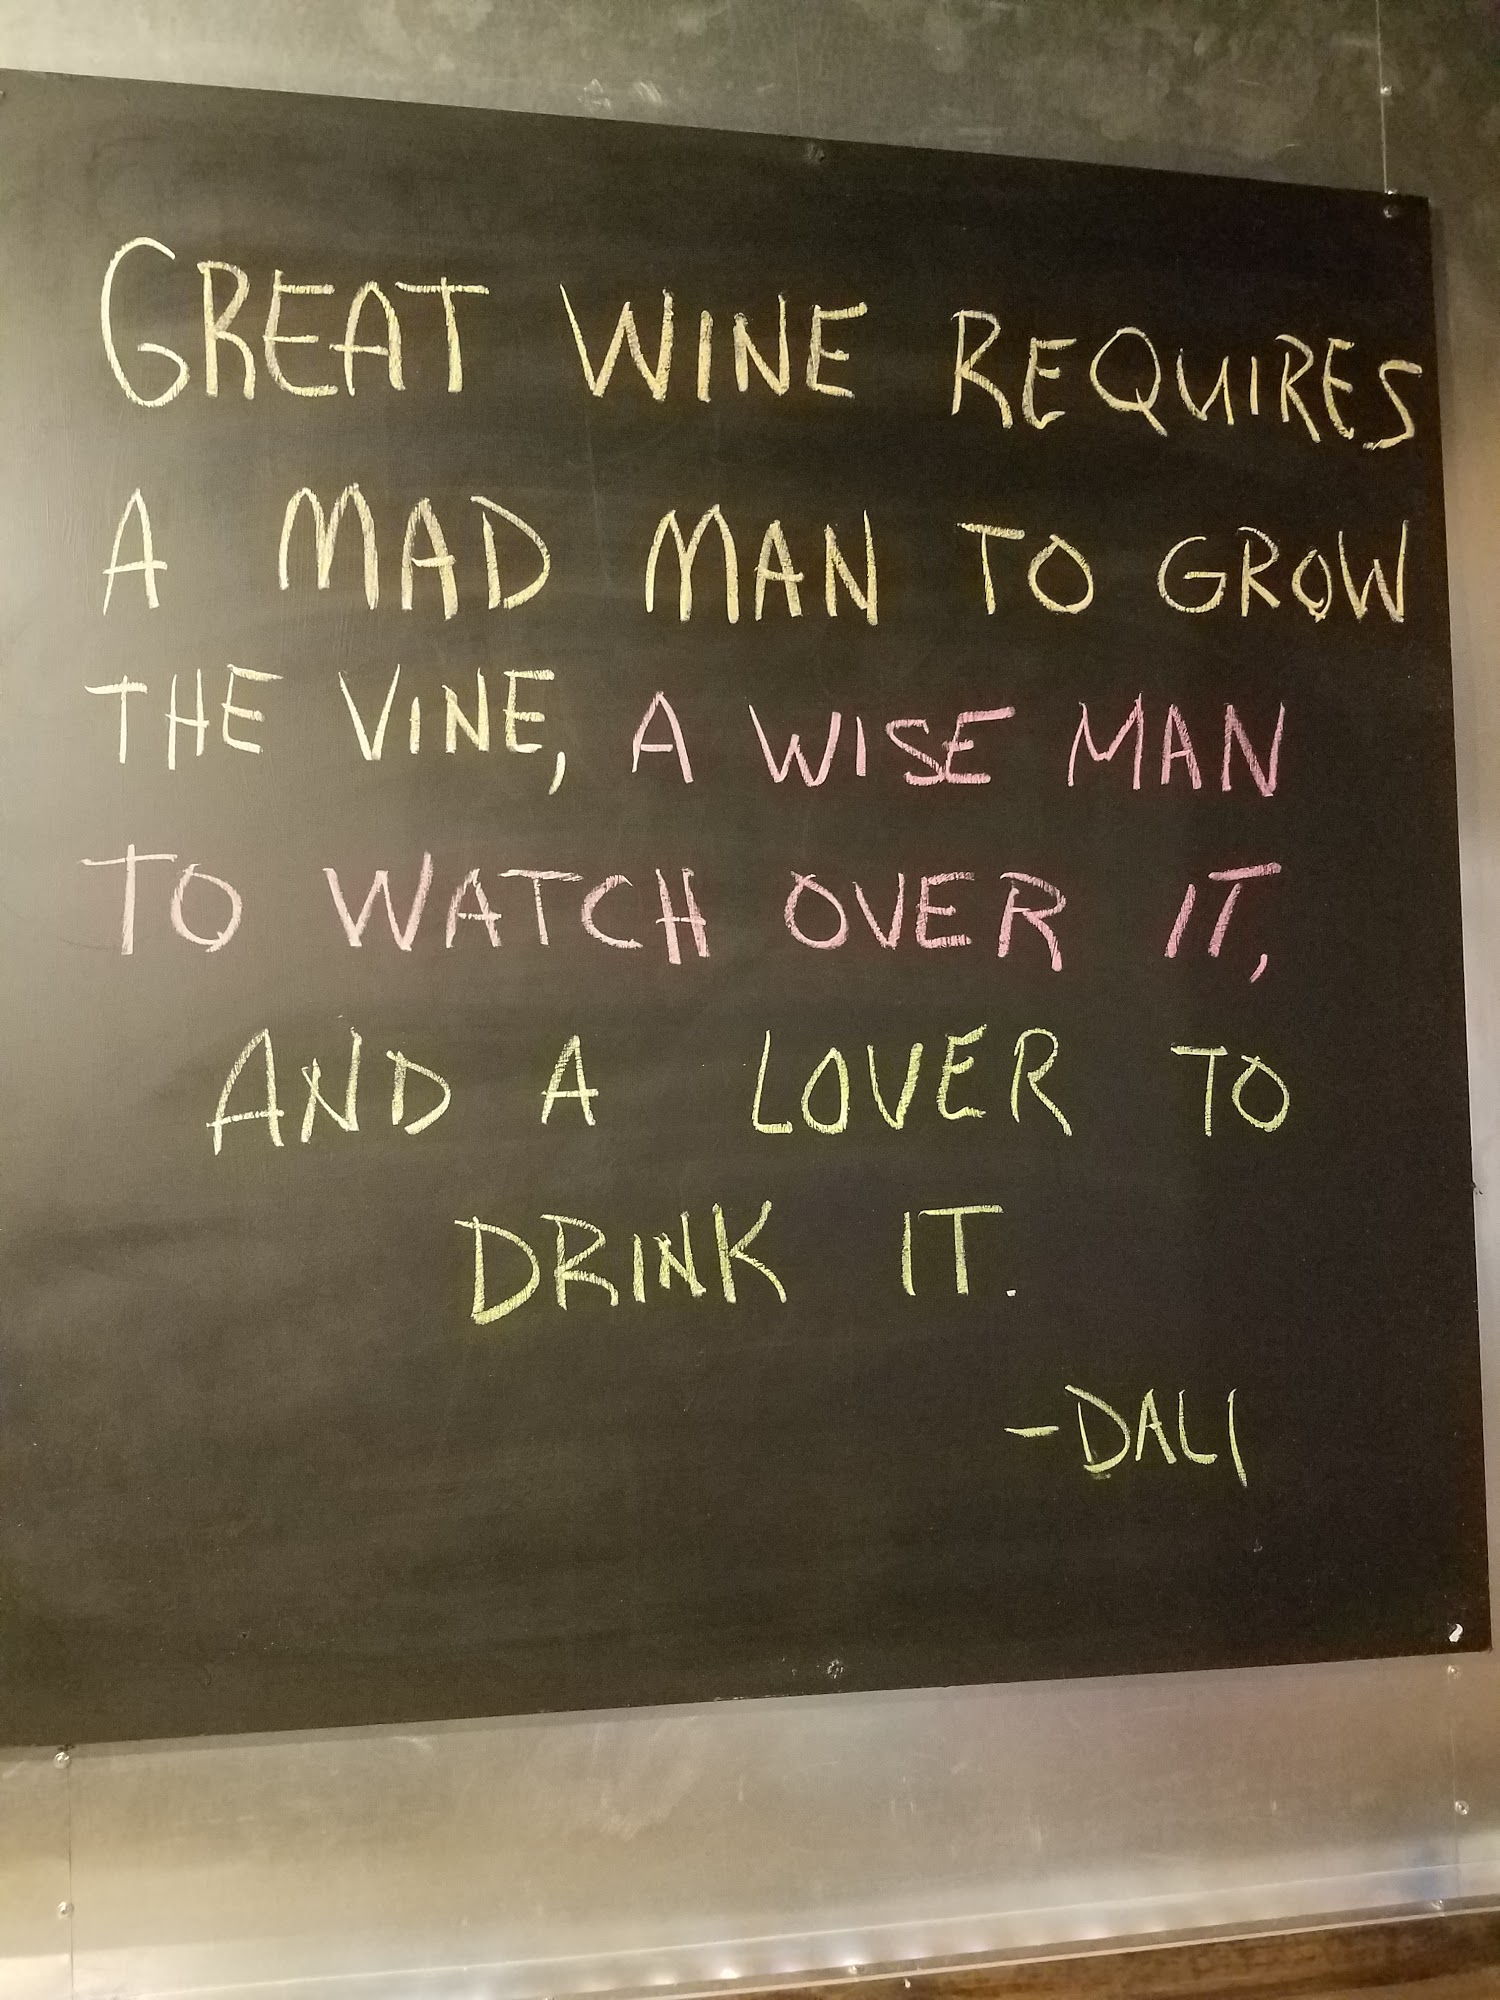 GREAT WINE REQUIRES
A MAD MAN TO GROW
THE VINE, A WISE MAN
TO WATCH OVER IT,
AND A LOVER TO
DRINK IT.
-DALI